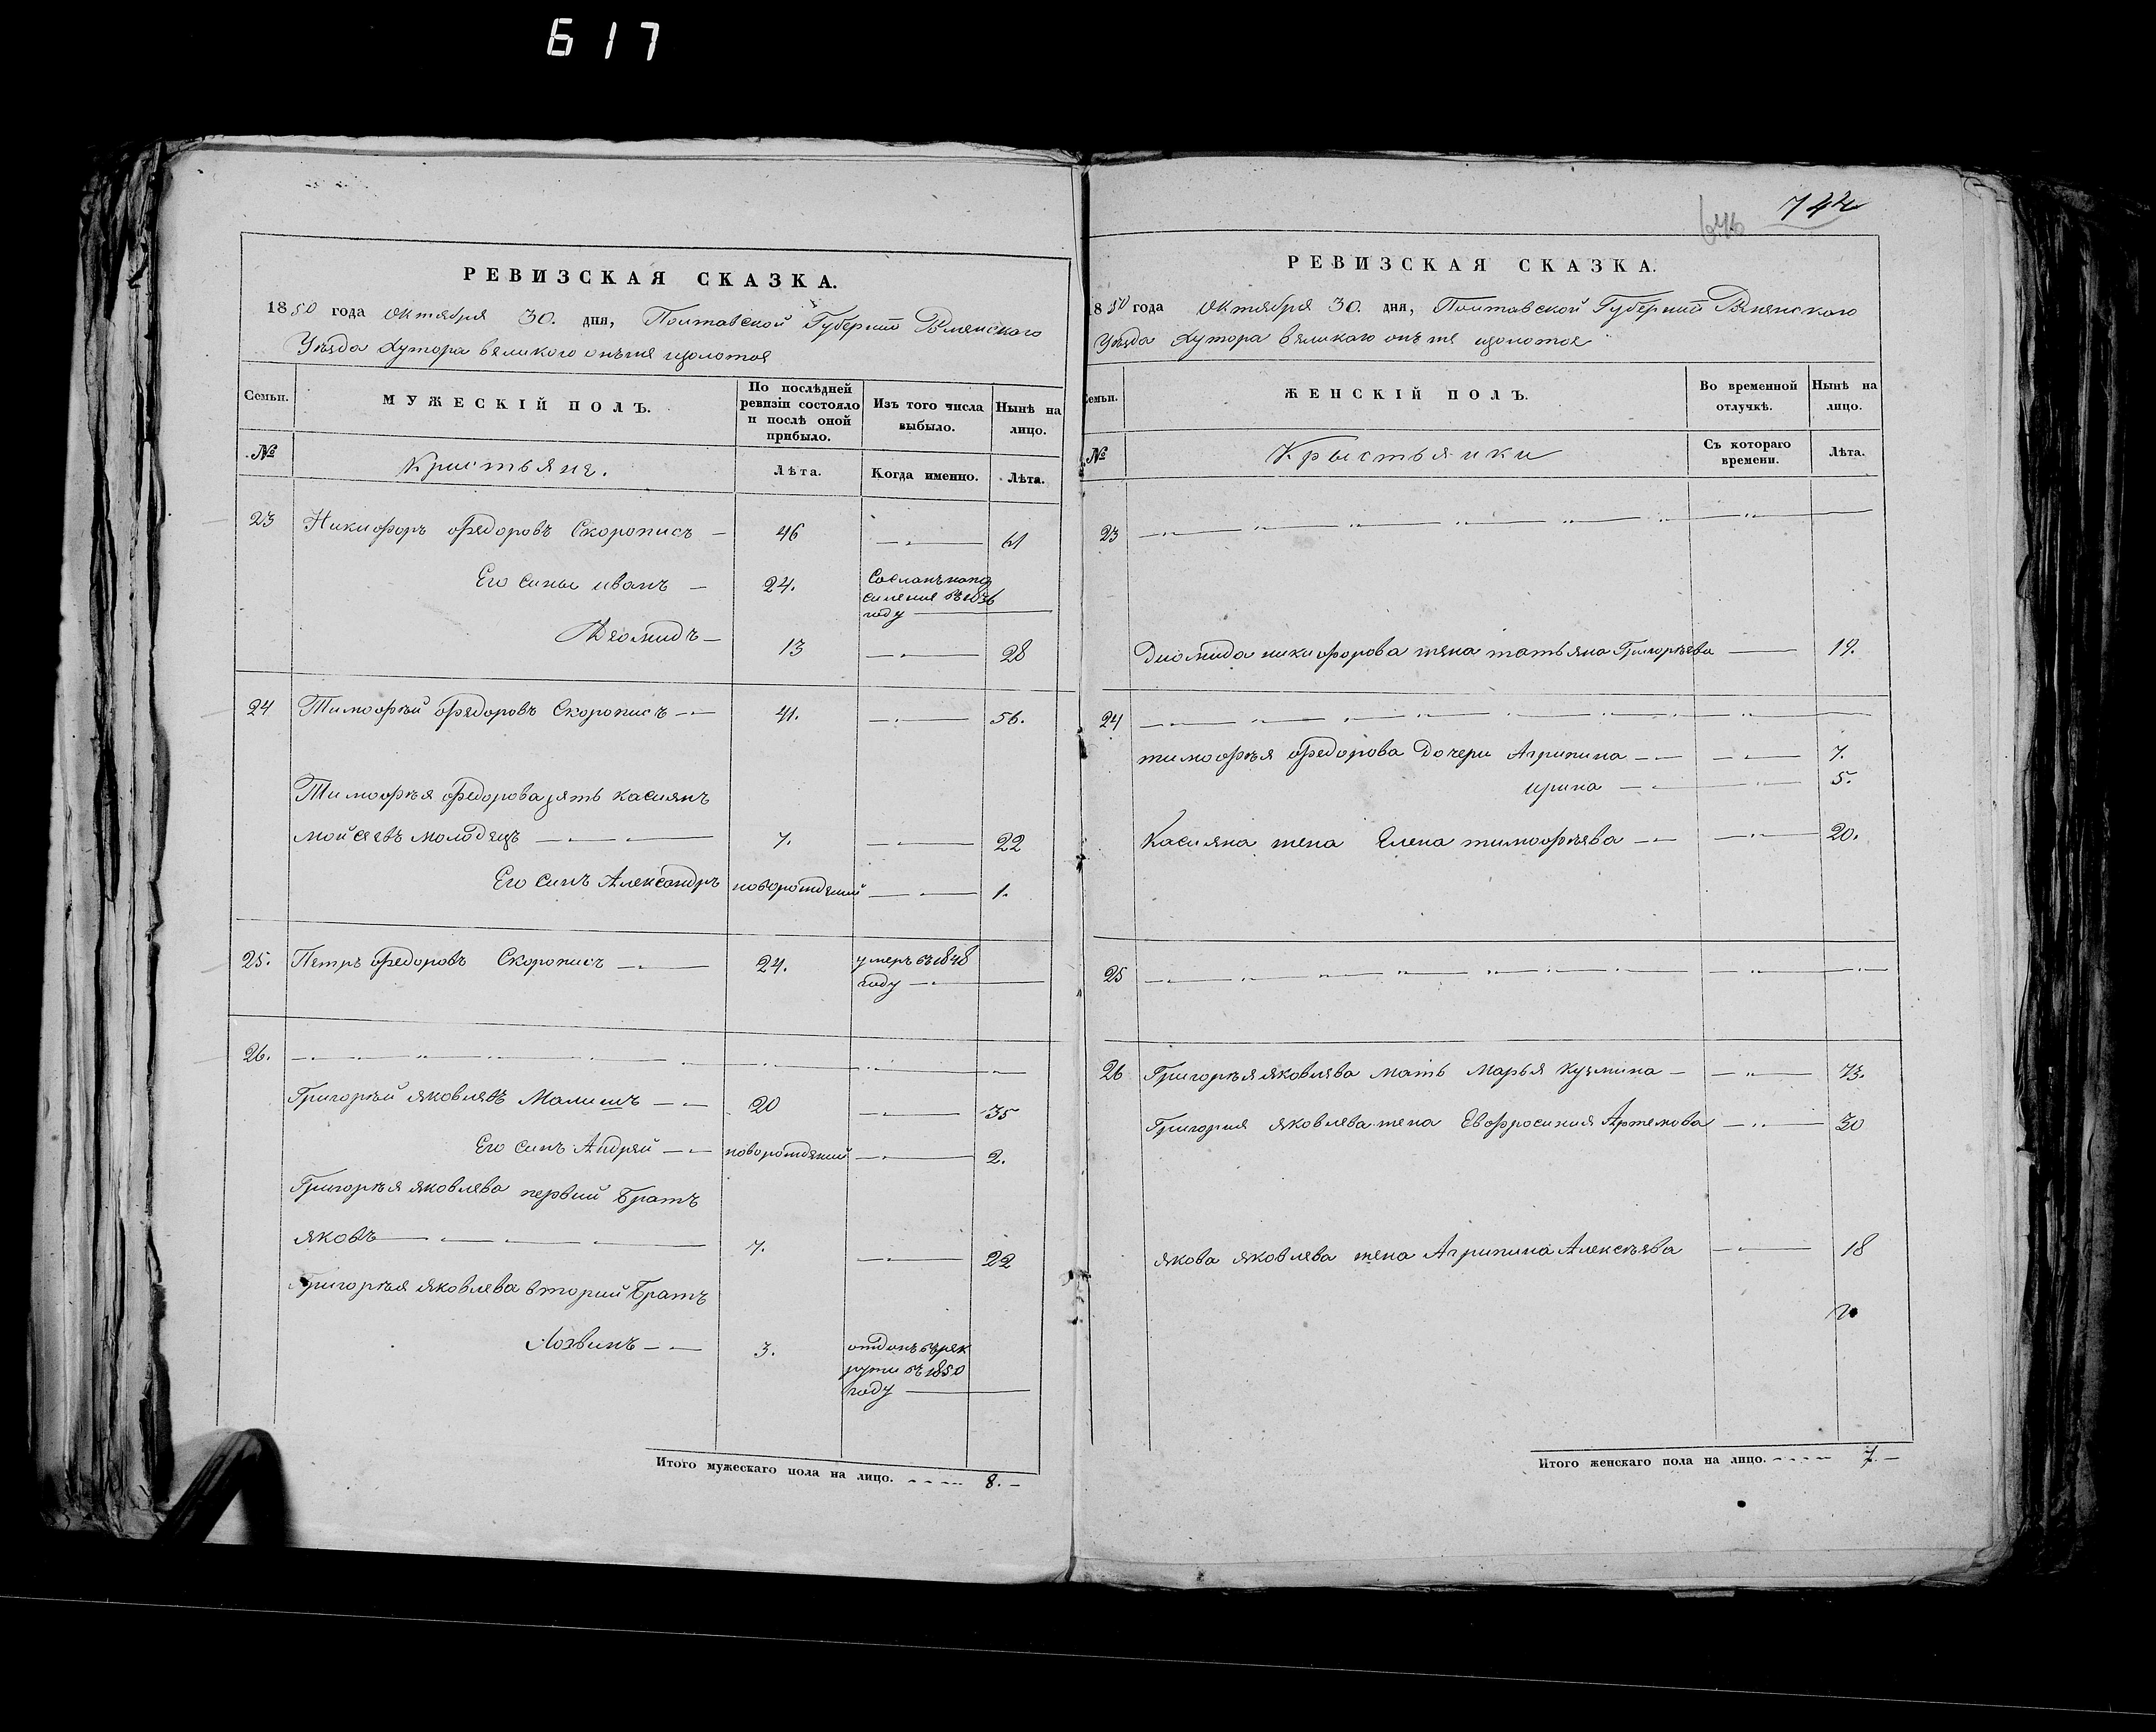 617
РЕВИЗСКАЯ СКАЗКА.
1850 года Октября 30. дня, Полтавской Губернии
Уѣзда Хутора
Семьи.
МУЖЕСКІЙ ПОЛЪ.
По послѣдней ревизіи состояло и послѣ оной прибыло.
Изъ того числа выбыло.
Нынѣ на лицо.
№
Кристьяне.
Лѣта.
Когда именно.
Лѣта.
23 Никифоръ Федоровъ Скорописъ — 46 61
Его сины иванъ — 24. Сосланъ на по
селение въ 1836
году
Деомидъ — 13 28
24 Тимофѣй Федоровъ Скорописъ 41. 56.
Тимофѣя Федорова зять касиянъ
мойсеевъ молодецъ 7. 22
Его синъ Александръ новорождений 1.
25. Петръ Федоровъ Скорописъ 24. умеръ въ 1848
году
26.
Григорѣй яковлевъ Малишъ 20 35
Его синъ Андрей новорождений 2.
Григорѣя яковлева первий братъ
яковъ 7. 22
Григорѣя яковлева вторий братъ
Логвинъ 3. отданъ въ рек
рути въ 1850
году
Итого мужескаго пола на лицо. 8.
646 744
РЕВИЗСКАЯ СКАЗКА.
1850 года Октября 30. дня, Полтавской Губернии
Уѣзда Хутора
Семьи.
ЖЕНСКІЙ ПОЛЪ.
Во временной отлучкѣ.
Нынѣ на лицо.
№
Крыстьянки
Съ котораго времени.
Лѣта.
23
Диомида никифорова жена татьяна Григорѣева 19.
24
тимофѣя Федорова Дочери Агрипина 7.
ирина 5.
Касияна жена Елена тимофѣева 20.
25
26 Григорѣя яковлева мать Марья Кузмина 73.
Григория яковлева жена Евфросиния Артемова 30
якова яковлева жена Агрипина Алексѣева 18
Итого женскаго пола на лицо. 7.